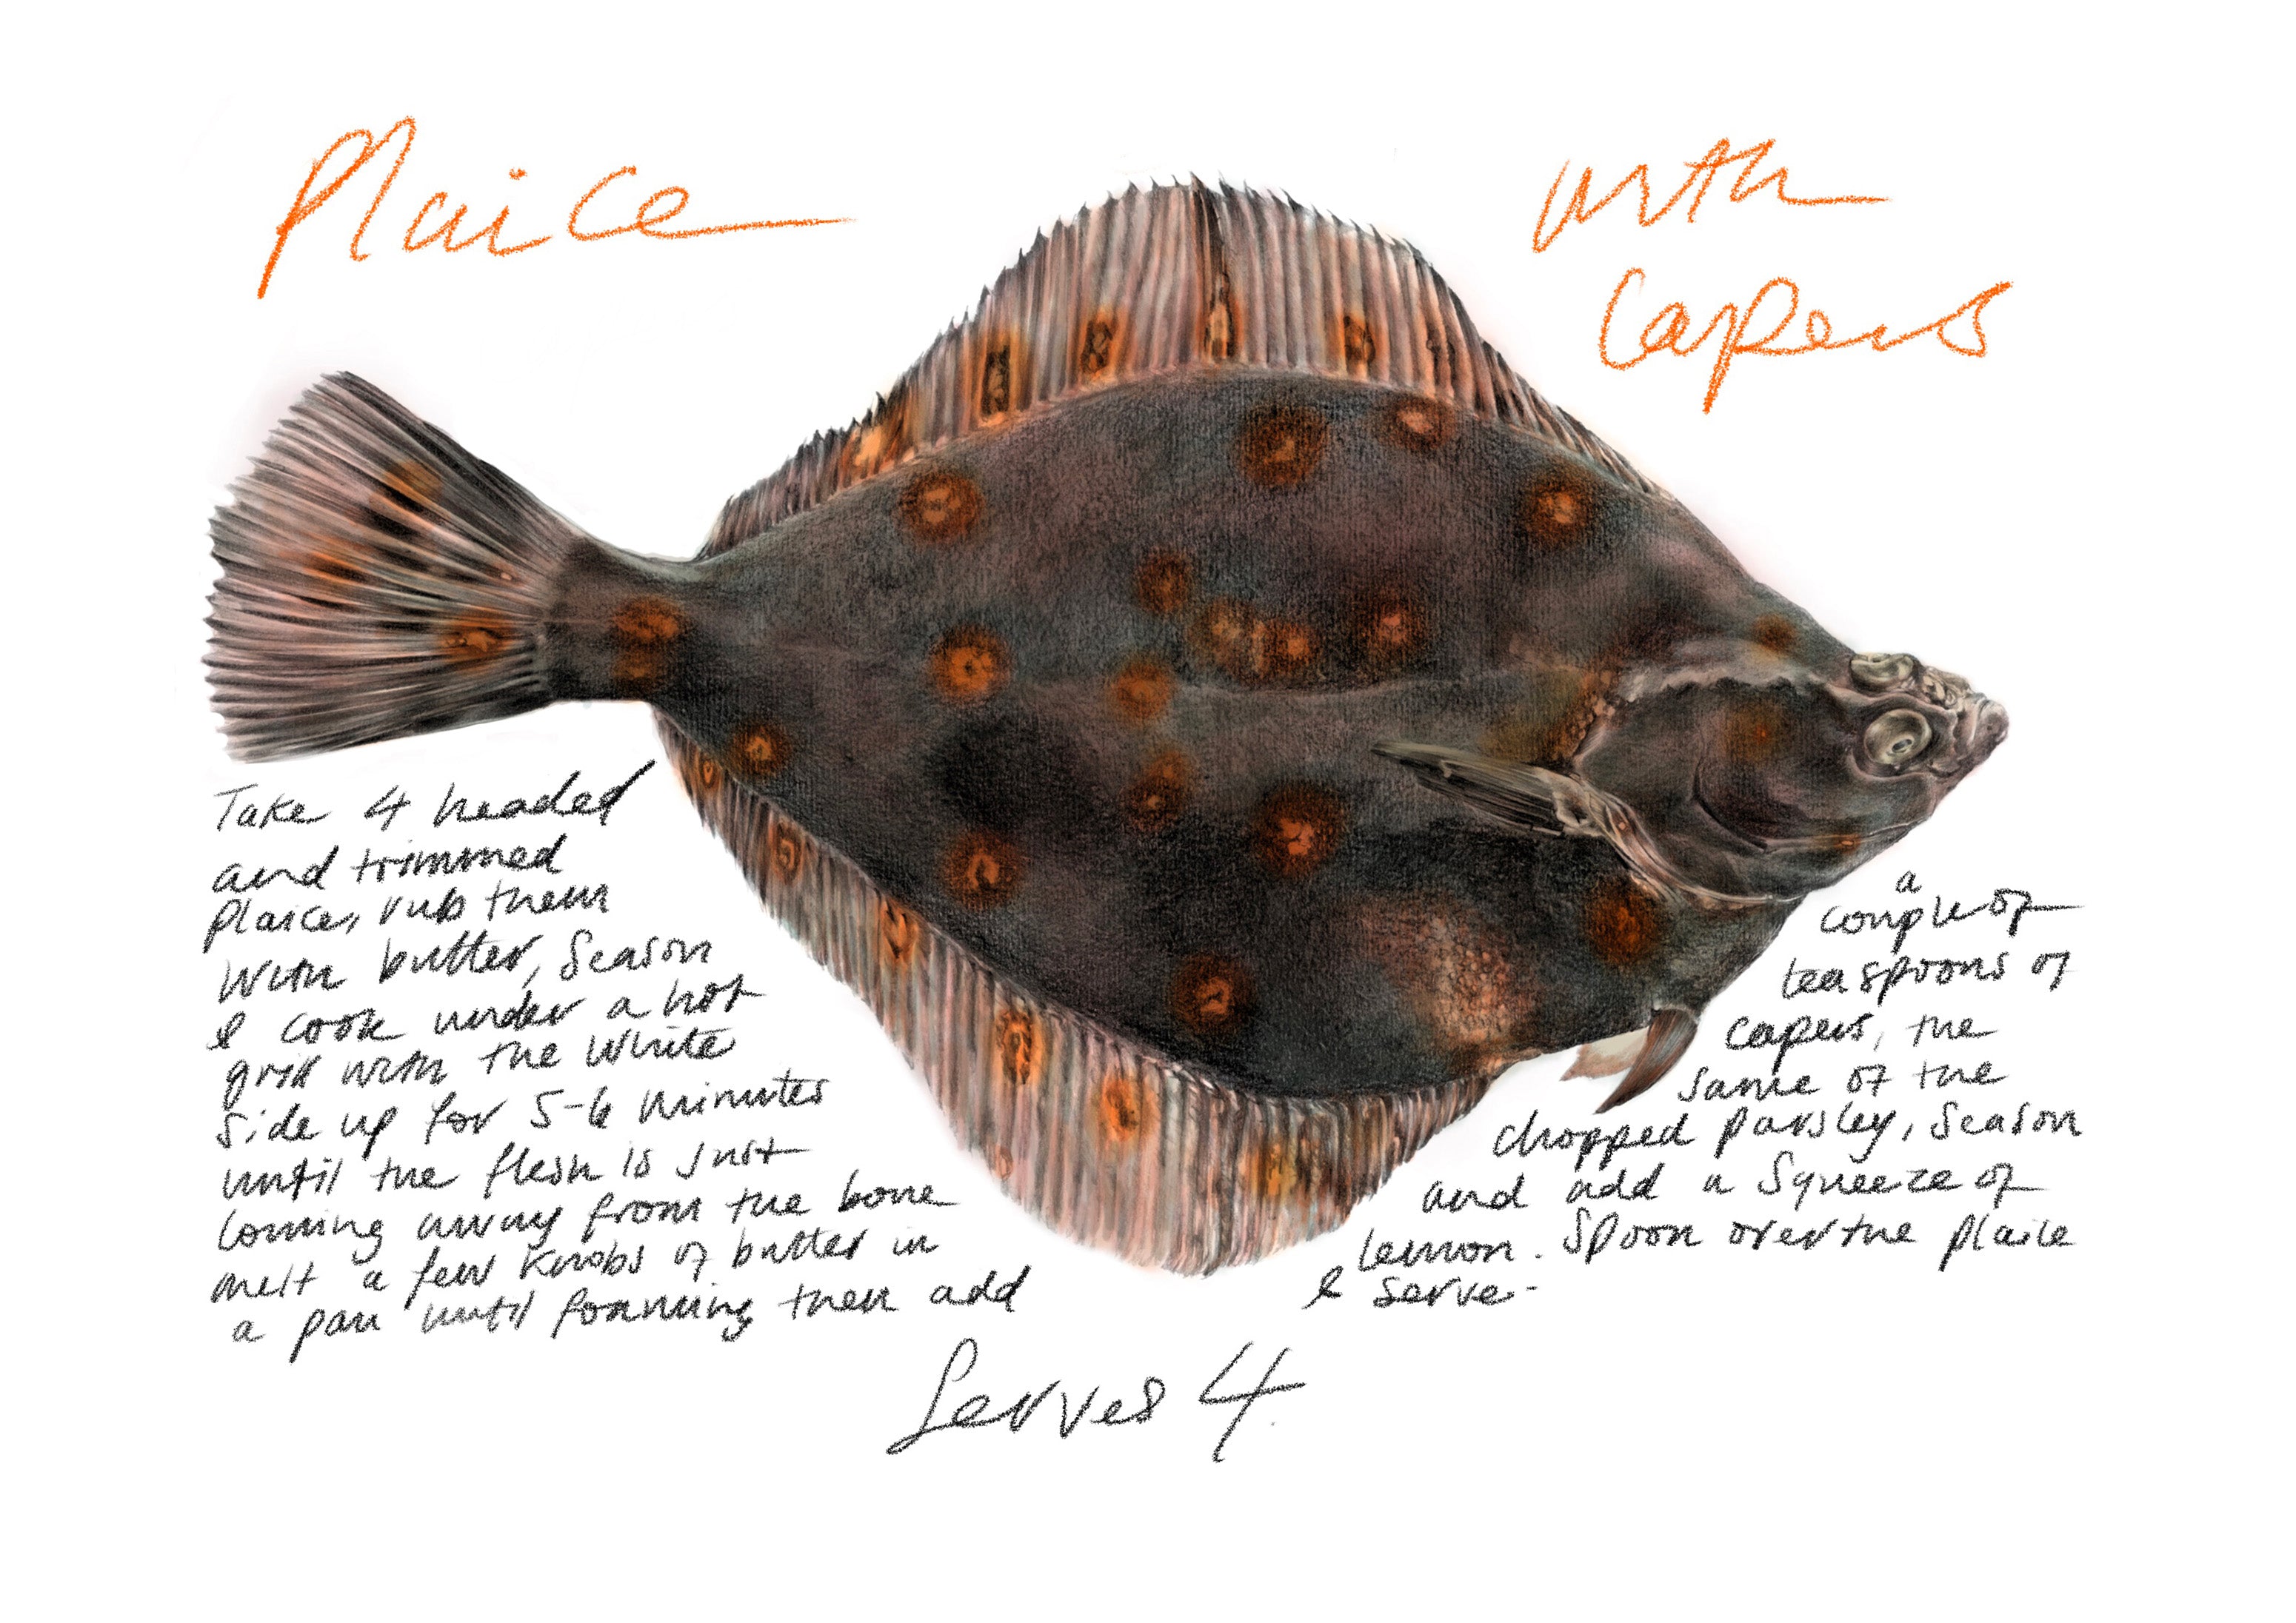 Plaice
with
capers
Take 4 headed
and trimmed
plaice, rub them
with butter, season
& cook under a hot
grill with the white
side up for 5-6 minutes
until the flesh is just
coming away from the bone
melt a few knobs of butter in
a pan until foaming then add
a
couple of
teaspoons of
capers, the
same of the
chopped parsley, season
and add a squeeze of
lemon. Spoon over the plaice
& serve-
Serves 4.